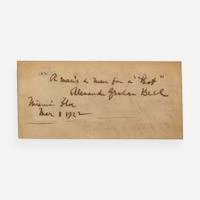 A man's a man for a' "that"
Alexander Graham Bell
Miami Fla
Mar 1 1922